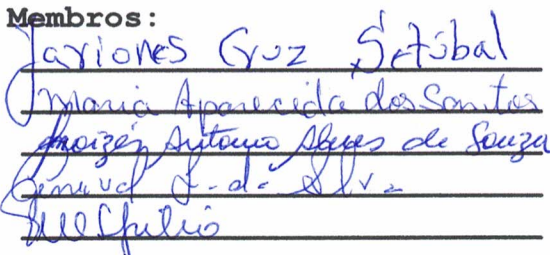 Membros:
Jariones Cruz Setúbal
Maria Aparecida dos Santos
Moizés Antonio Alves de Souza
Genival